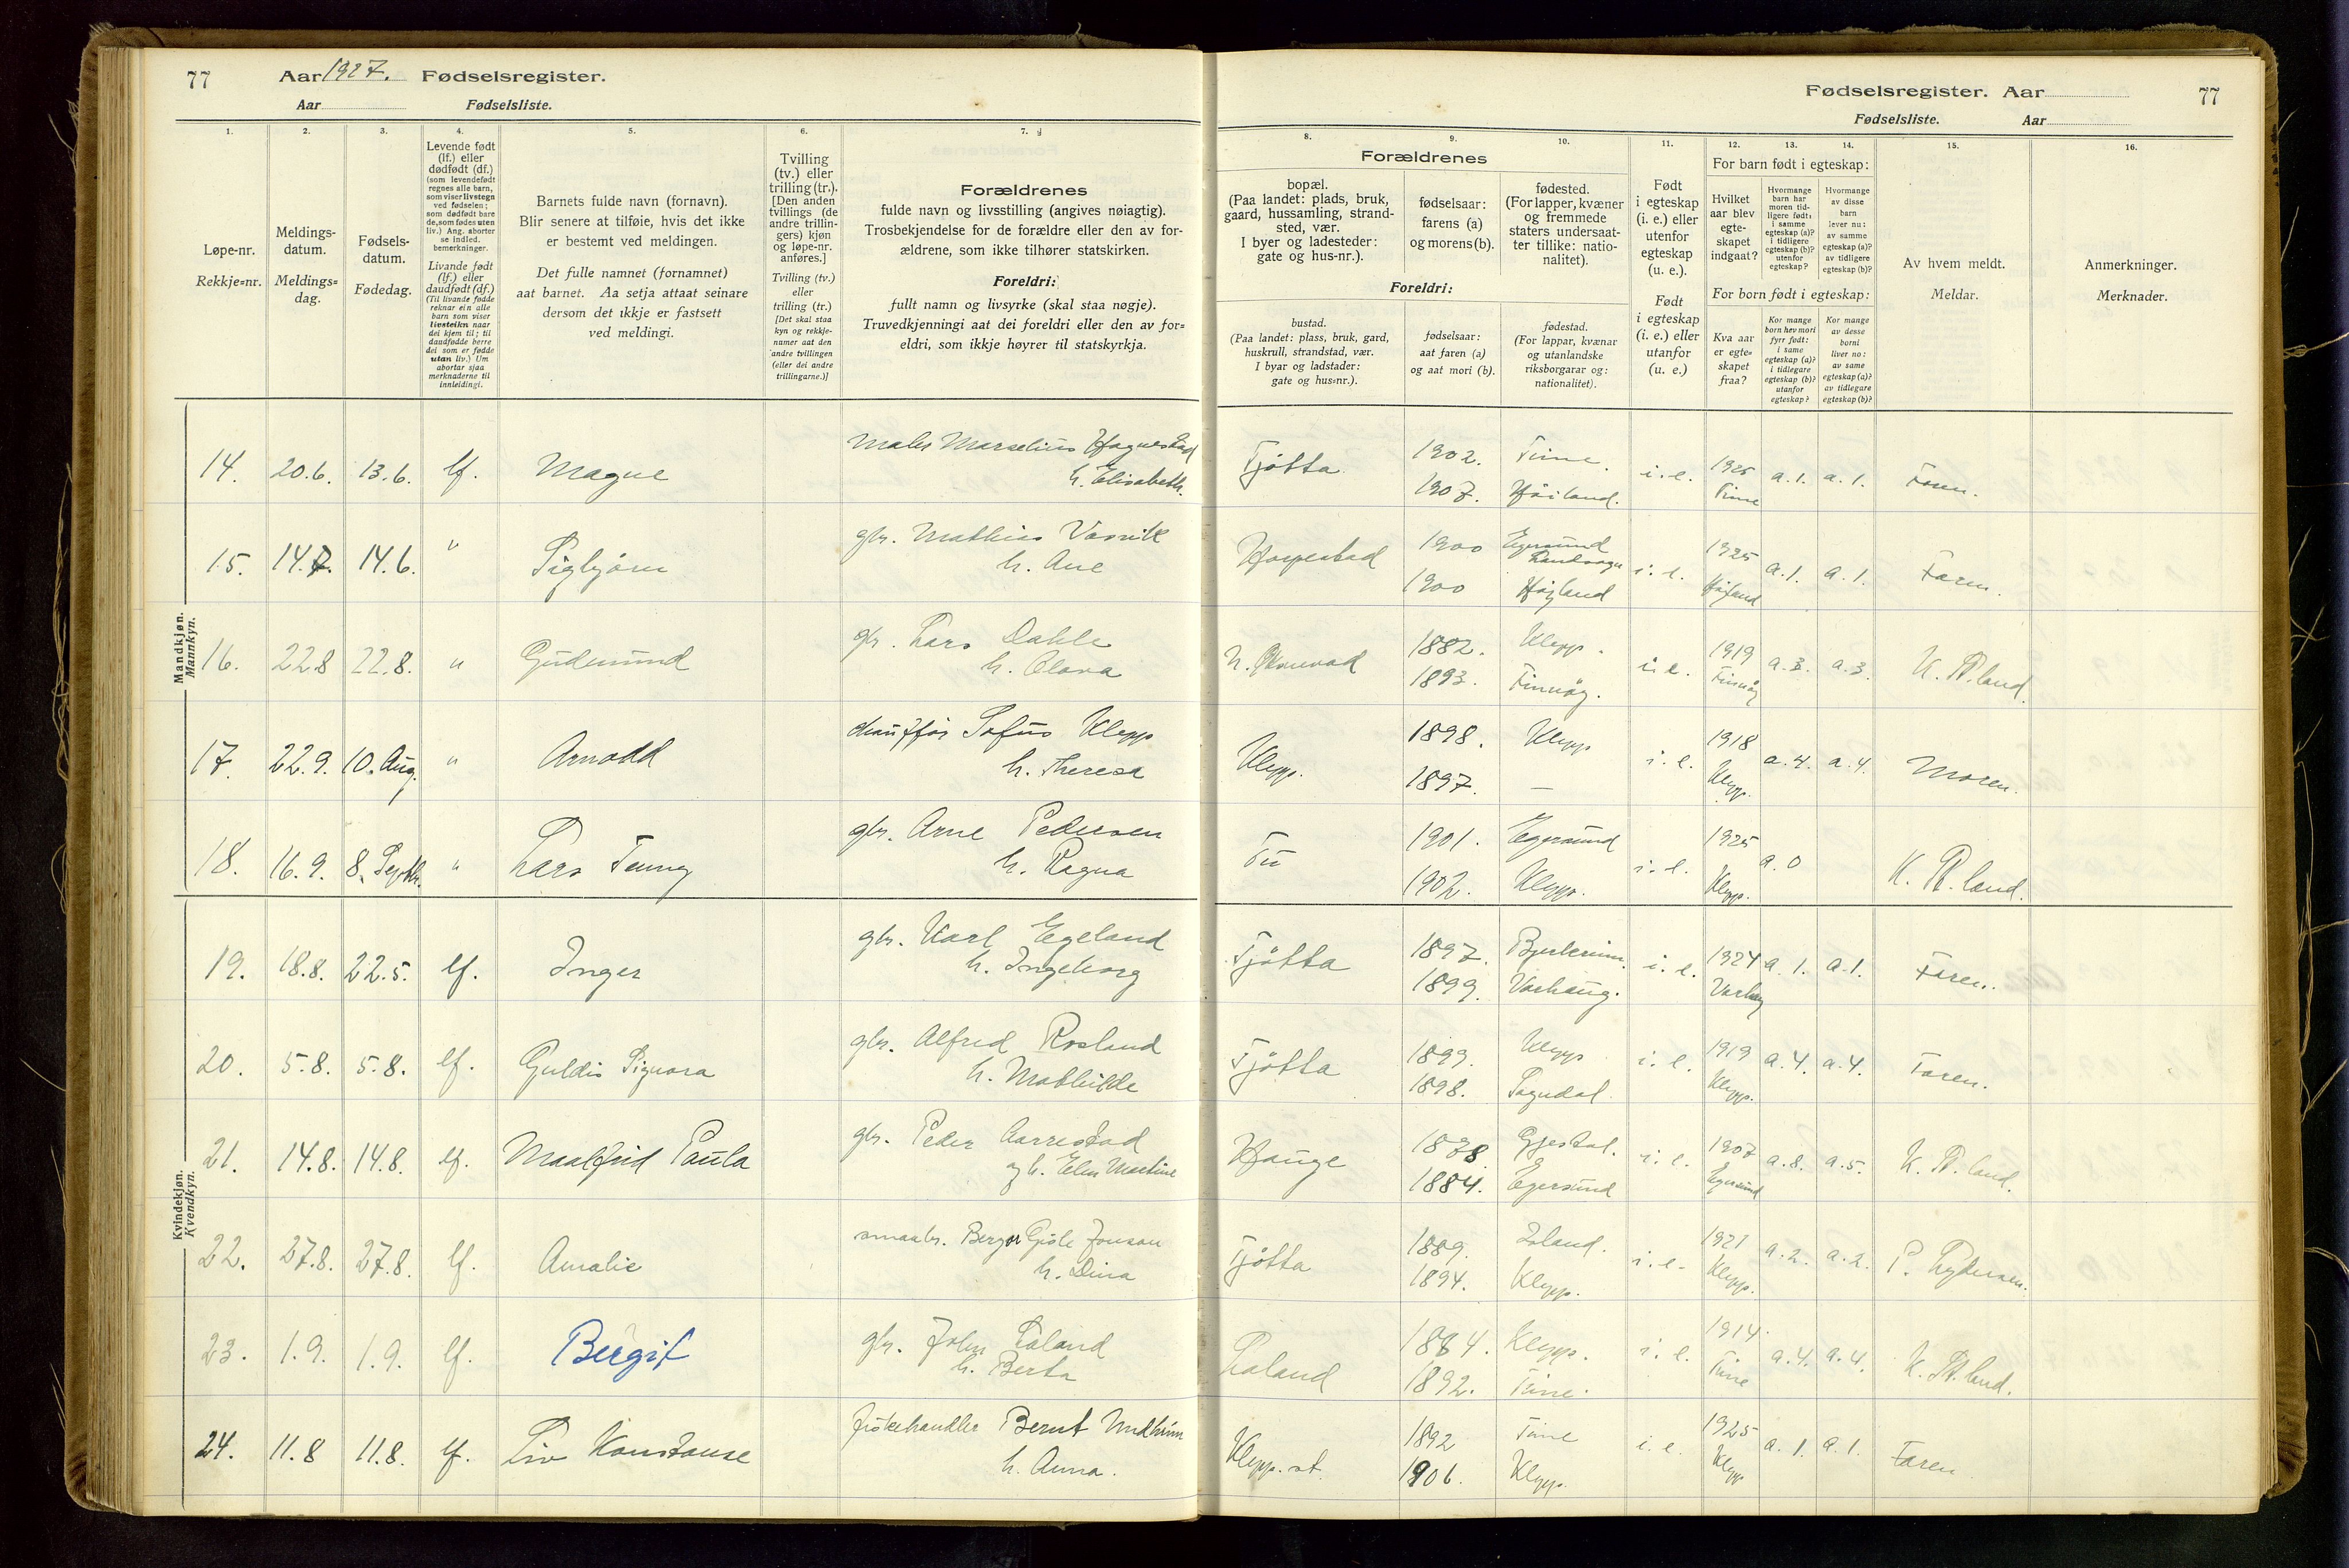 77
Aar 1927. Fødselsregister.
Aar Fødselsliste.
Fødselsregister. Aar 77
Fødselsliste. Aar
1. 2. 3. 4. 5. 6. 7.
Løpe-nr.
Rekkje=nr.
Meldings-
datum.
Meldings=
dag.
Fødsels-
datum.
Fødedag.
Levende født
(lf.) eller
dødfødt (df.)
(som levendefødt
regnes alle barn,
som viser livstegn
ved fødselen;
som dødfødt bare
de, som fødes uten
liv.) Ang. aborter
se indled.
bemerkninger.
Livande født
(lf.) eller
daudfødt (df.)
(Til livande fødde
reknar ein alle
barn som viser
livsteikn naar
dei kjem til; til
daudfødde berre
dei som er fødde
utan liv.) Um
abortar sjaa
merknaderne til
innleidingi.
Barnets fulde navn (fornavn).
Blir senere at tilføie, hvis det ikke
er bestemt ved meldingen.
Det fulle namnet (fornamnet)
aat barnet. Aa setja attaat seinare
dersom det ikkje er fastsett
ved meldingi.
Tvilling
(tv.) eller
trilling (tr.).
[Den anden
tvillings (de
andre trillin-
gers) kjøn
og løpe-nr.
anføres.]
Tvilling (tv.)
eller
trilling (tr.)
[Det skal staa
kyn og rekkje-
numer aat den
andre tvillingen
(eller dei andre
trillingarne.)]
Forældrenes
fulde navn og livsstilling (angives nøiagtig).
Trosbekjendelse for de forældre eller den av for-
ældrene, som ikke tilhører statskirken.
Foreldri:
fullt namn og livsyrke (skal staa nøgje).
Truvedkjenningi aat dei foreldri eller den av for=
eldri, som ikkje høyrer til statskyrkja.
8. 9. 10. 11. 12. 13. 14. 15. 16.
Forældrenes
bopæl.
(Paa landet: plads, bruk,
gaard, hussamling, strand-
sted, vær.
I byer og ladesteder:
gate og hus-nr.).
fødselsaar:
farens (a)
og morens (b).
fødested.
(For lapper, kvæner
og fremmede
staters undersaat-
ter tillike: natio-
nalitet).
Foreldri:
bustad.
(Paa landet: plass, bruk, gard,
huskrull, strandstad, vær.
I byar og ladstader:
gate og hus=nr.).
fødselsaar:
aat faren (a)
og aat mori (b).
fødestad.
(For lappar, kvænar
og utanlandske
riksborgarar og:
nationalitet).
Født
i egteskap
(i. e.) eller
utenfor
egteskap
(u. e.).
Født
i egteskap
(i. e.) eller
utanfor
(u. e.)
For barn født i egteskap:
Hvilket
aar blev
egte-
skapet
indgaat?
Hvormange
barn har
moren tid-
ligere født:
i samme
egteskap (a)?
i tidligere
egteskap (b)?
utenfor
egteskap?
Hvormange
av disse
barn
lever nu:
av samme
egteskap (a)?
av tidligere
egteskap (b)?
For born født i egteskap:
Kva aar
er egte=
skapet
fraa?
Kor mange
born hev mori
fyrr født:
i same
egteskap (a)?
i tidlegare
egteskap (b)?
utanfor
egteskap?
Kor mange
av desse
borni
liver no:
av same
egteskap (a)?
av tidlegare
egteskap (b)?
Av hvem meldt.
Meldar.
Anmerkninger.
Merknader.
Mandkjøn.
Mannkyn.
14. 20.6. 13.6. lf. Magne Maler Marselius Hognestad h. Elisabeth. Tjøtta 1902. 1907. Time. Høiland. i. e. 1925 Time a. 1. a. 1. Faren.
15. 14.7. 14.6. " Sigbjørn gbr. Mathias h. Ane 1900 1900 Egersund Landsogn Højland i. e. 1925 Højland a. 1. a. 1. Faren.
16. 22.8 22.8. " Gudmund gbr. Lars Dahle h. Olava 1882. 1893. Klepp. Finnøy. i. e. 1919 Finnøy a. 3. a. 3.
17. 22.9. 10. Aug. " Arnodd chauffør Sofus Klepp h. Theresa Klepp. 1898. 1897. Klepp — i. e. 1918 Klepp. a. 4. a. 4. Moren.
18. 16.9. 8. Septbr. " Lars gbr. Arne Pedersen h. Ragna Tu 1901. 1902. Egersund Klepp. i. e. 1925 Klepp. a. 0
Kvindekjøn.
Kvendkyn.
19. 18.8. 22.5. lf. Inger gbr. Karl Egeland h. Ingeborg Tjøtta 1897. 1899. Bjerkreim. Varhaug. i. e. 1924 Varhaug a. 1. a. 1. Faren.
20. 5.8. 5.8. lf. Guldis Signora gbr. Alfred Rosland h. Mathilde Tjøtta 1899. 1898. Klepp Sogndal. i. e. 1919 Klepp. a. 4. a. 4. Faren.
21. 14.8. 14.8. lf. Maalfrid Paula gbr. Peder Aarrestad og h. Elen Martine Hauge 1878. 1884. Gjestal. Egersund i. e. 1907 Egersund a. 8. a. 5.
22. 27.8. 27.8. lf. Amalie smaabr. Berger Gisle Jonsson h. Dina Tjøtta 1889. 1894. Island. Klepp. i. e. 1921 Klepp. a. 2. a. 2.
23. 1.9. 1.9. lf. Bergit gbr. John Laland h. Berta Laland 1884. 1892. Klepp. Time. i. e. 1914. Time a. 4. a. 4.
24. 11.8 11.8. lf. Liv Konstanse fiskehandler Bernt Undheim h. Anna. Klepp. st. 1892 1906. Time Klepp. i. e. 1925 Klepp a. 1. a. 1. Faren